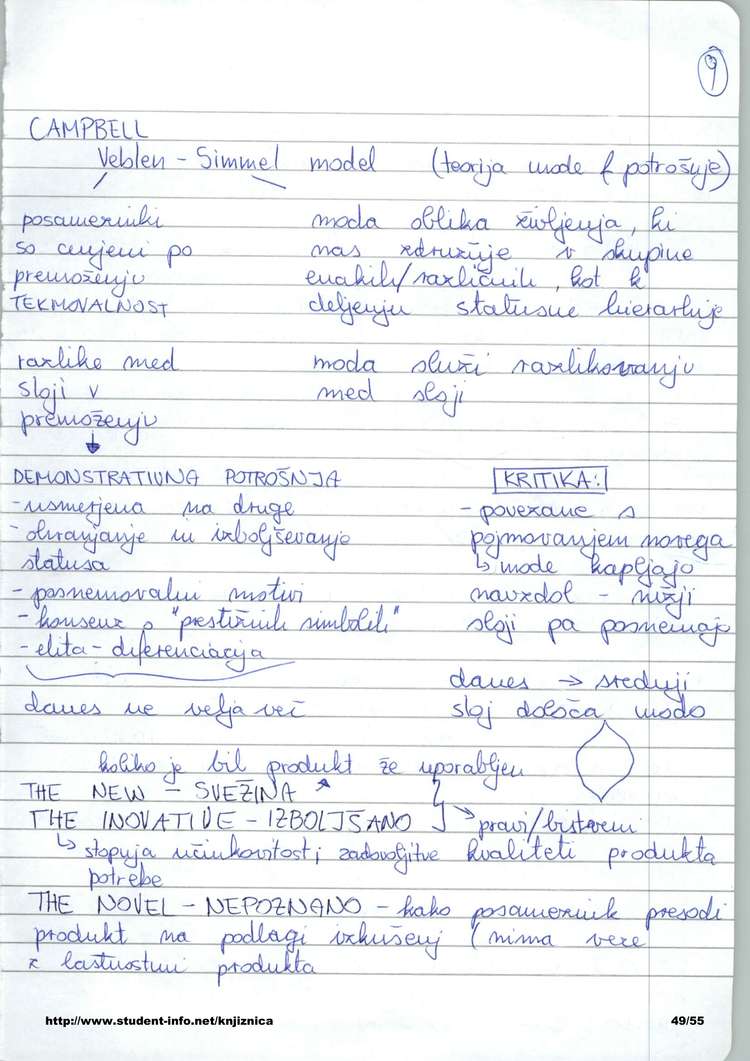 9
CAMPBELL
Veblen - Simmel model (teorija mode & potrošnje)
posamezniki
so cenjeni po
premoženju
TEKMOVALNOST
moda oblika življenja, ki
nas združuje v skupine
enakih/različnih, kot k
deljenju statusne hierarhije
razlike med
sloji v
premoženju
moda služi razlikovanju
med sloji
DEMONSTRATIVNA POTROŠNJA
- usmerjena na druge
- ohranjanje in izboljševanje
statusa
- posnemovalni motivi
- konsenz o "prestižnih simbolih"
- elita - diferenciacija
danes ne velja več
KRITIKA:
- povezane s
pojmovanjem novega
↳ mode kapljajo
navzdol - nižji
sloji pa posnemajo
danes → srednji
sloj določa modo
koliko je bil produkt že uporabljen
THE NEW - SVEŽINA
THE INOVATIVE - IZBOLJŠANO → pravi/bistveni
↳ stopnja učinkovitosti, zadovoljitve kvaliteti produkta
potrebe
THE NOVEL - NEPOZNANO - kako posameznik presodi
produkt na podlagi izkušenj (nima veze
z lastnostmi produkta
http://www.student-info.net/knjiznica
49/55